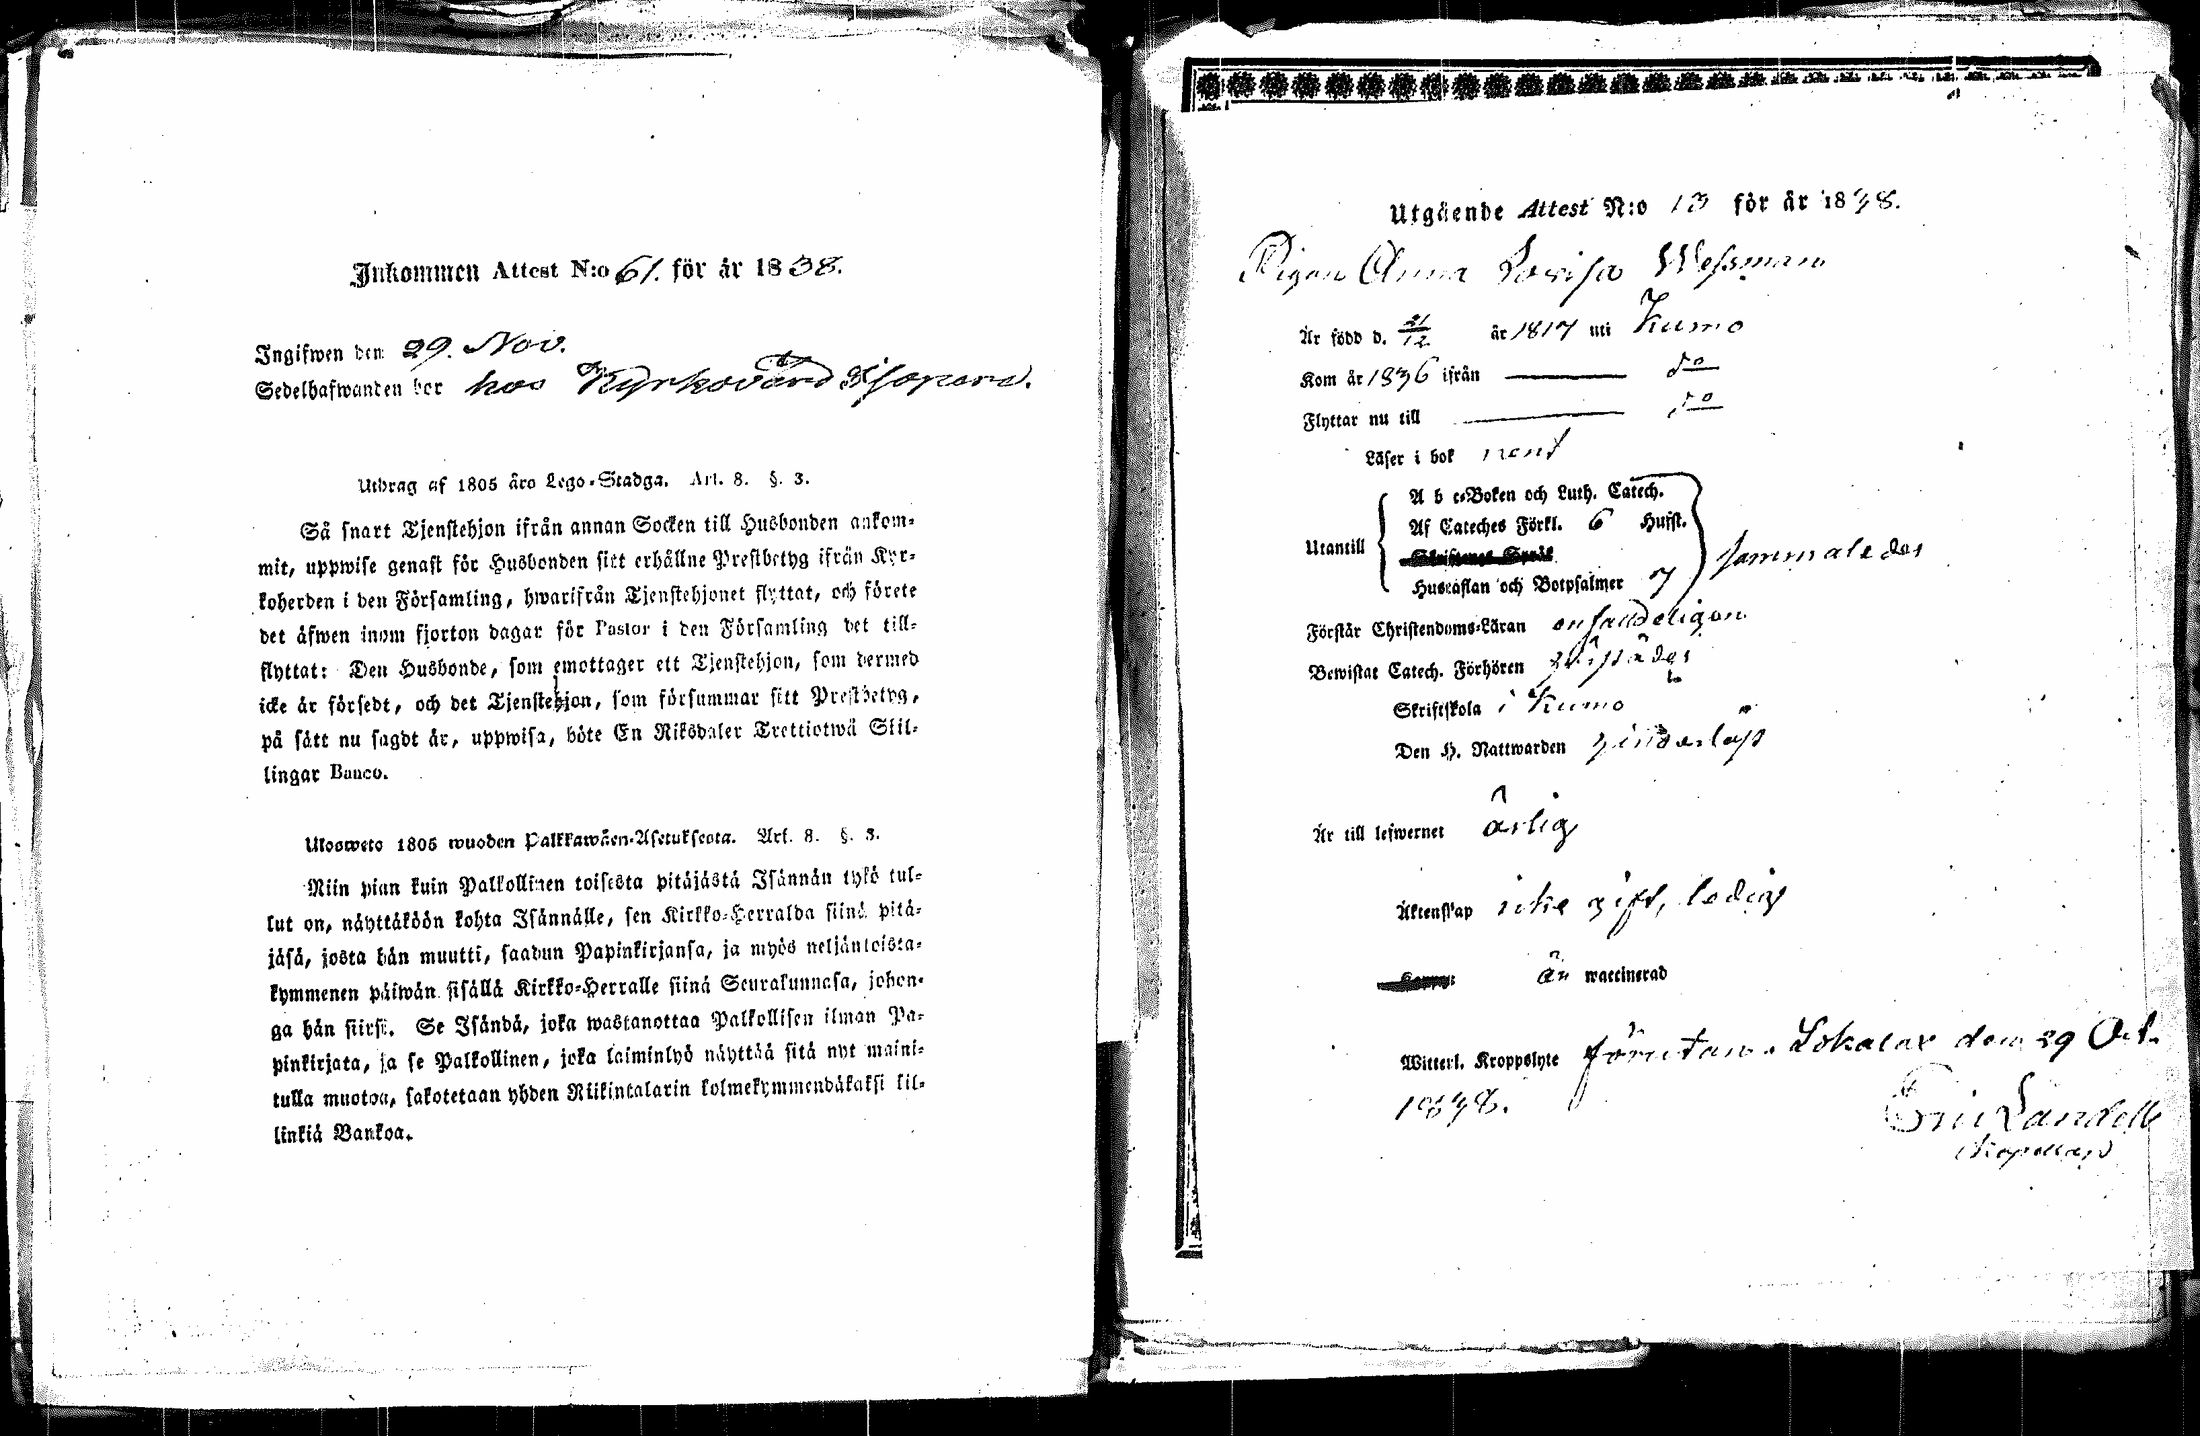 Inkommen Attest N:o 61. för år 1838.
Ingifwen den 29. Nov.
Sedelhafwanden bor hos Kyrkovärd
Utdrag af 1805 års Lego-Stadga. Art. 8. §. 3.
Så snart Tjenstehjon ifrån annan Socken till Husbonden ankom-
mit, uppwise genast för Husbonden sitt erhållne Prestbetyg ifrån Kyr-
koherden i den Församling, hwarifrån Tjenstehjonet flyttat, och förete
det äfwen inom fjorton dagar för Pastor i den Församling det till-
flyttat: Den Husbonde, som emottager ett Tjenstehjon, som dermed
icke är försedt, och det Tjenstehjon, som försummar sitt Prestbetyg,
på sätt nu sagdt är, uppwisa, böte En Riksdaler Trettiotwå Skil-
lingar Banco.
Ulosweto 1805 wuoden Palkkawäen-Asetuksesta. Art. 8. §. 3.
Niin pian kuin Palkollinen toisesta pitäjästä Isännän tykö tul-
lut on, näyttäköön kohta Isännälle, sen Kirkko-Herralda siinä pitä-
jäsä, josta hän muutti, saadun Papinkirjansa, ja myös neljäntoista-
kymmenen päiwän sisällä Kirkko-Herralle siinä Seurakunnasa, johon-
ga hän siirsi. Se Isändä, joka wastanottaa Palkollisen ilman Pa-
pinkirjata, ja se Palkollinen, joka laiminlyö näyttää sitä nyt maini-
tulla muotoa, sakotetaan yhden Riikintalarin kolmekymmendäkaksi kil-
linkiä Bankoa.
Utgående Attest N:o 13 för år 1838.
Pigan Anna Lovisa Wessman
Är född d. 21/12 år 1817 uti Kumo
Kom år 1836 ifrån do
Flyttar nu till do
Läser i bok rent
A b c-Boken och Luth. Catech.
Af Cateches Förkl. 6 Hufst.
Utantill sammaledes
Hustaflan och Botpsalmer 7
Förstår Christendoms-Läran enfaldeligen
Bewistat Catech. Förhören
Skriftskola i Kumo
Den H. Nattwarden
Är till lefwernet ärlig
Äktenskap icke gift, ledig
är waccinerad
Witterl. Kroppslyte förutan. Lokalax den 29 Oct.
1838.
Eric Landell
Kapellan